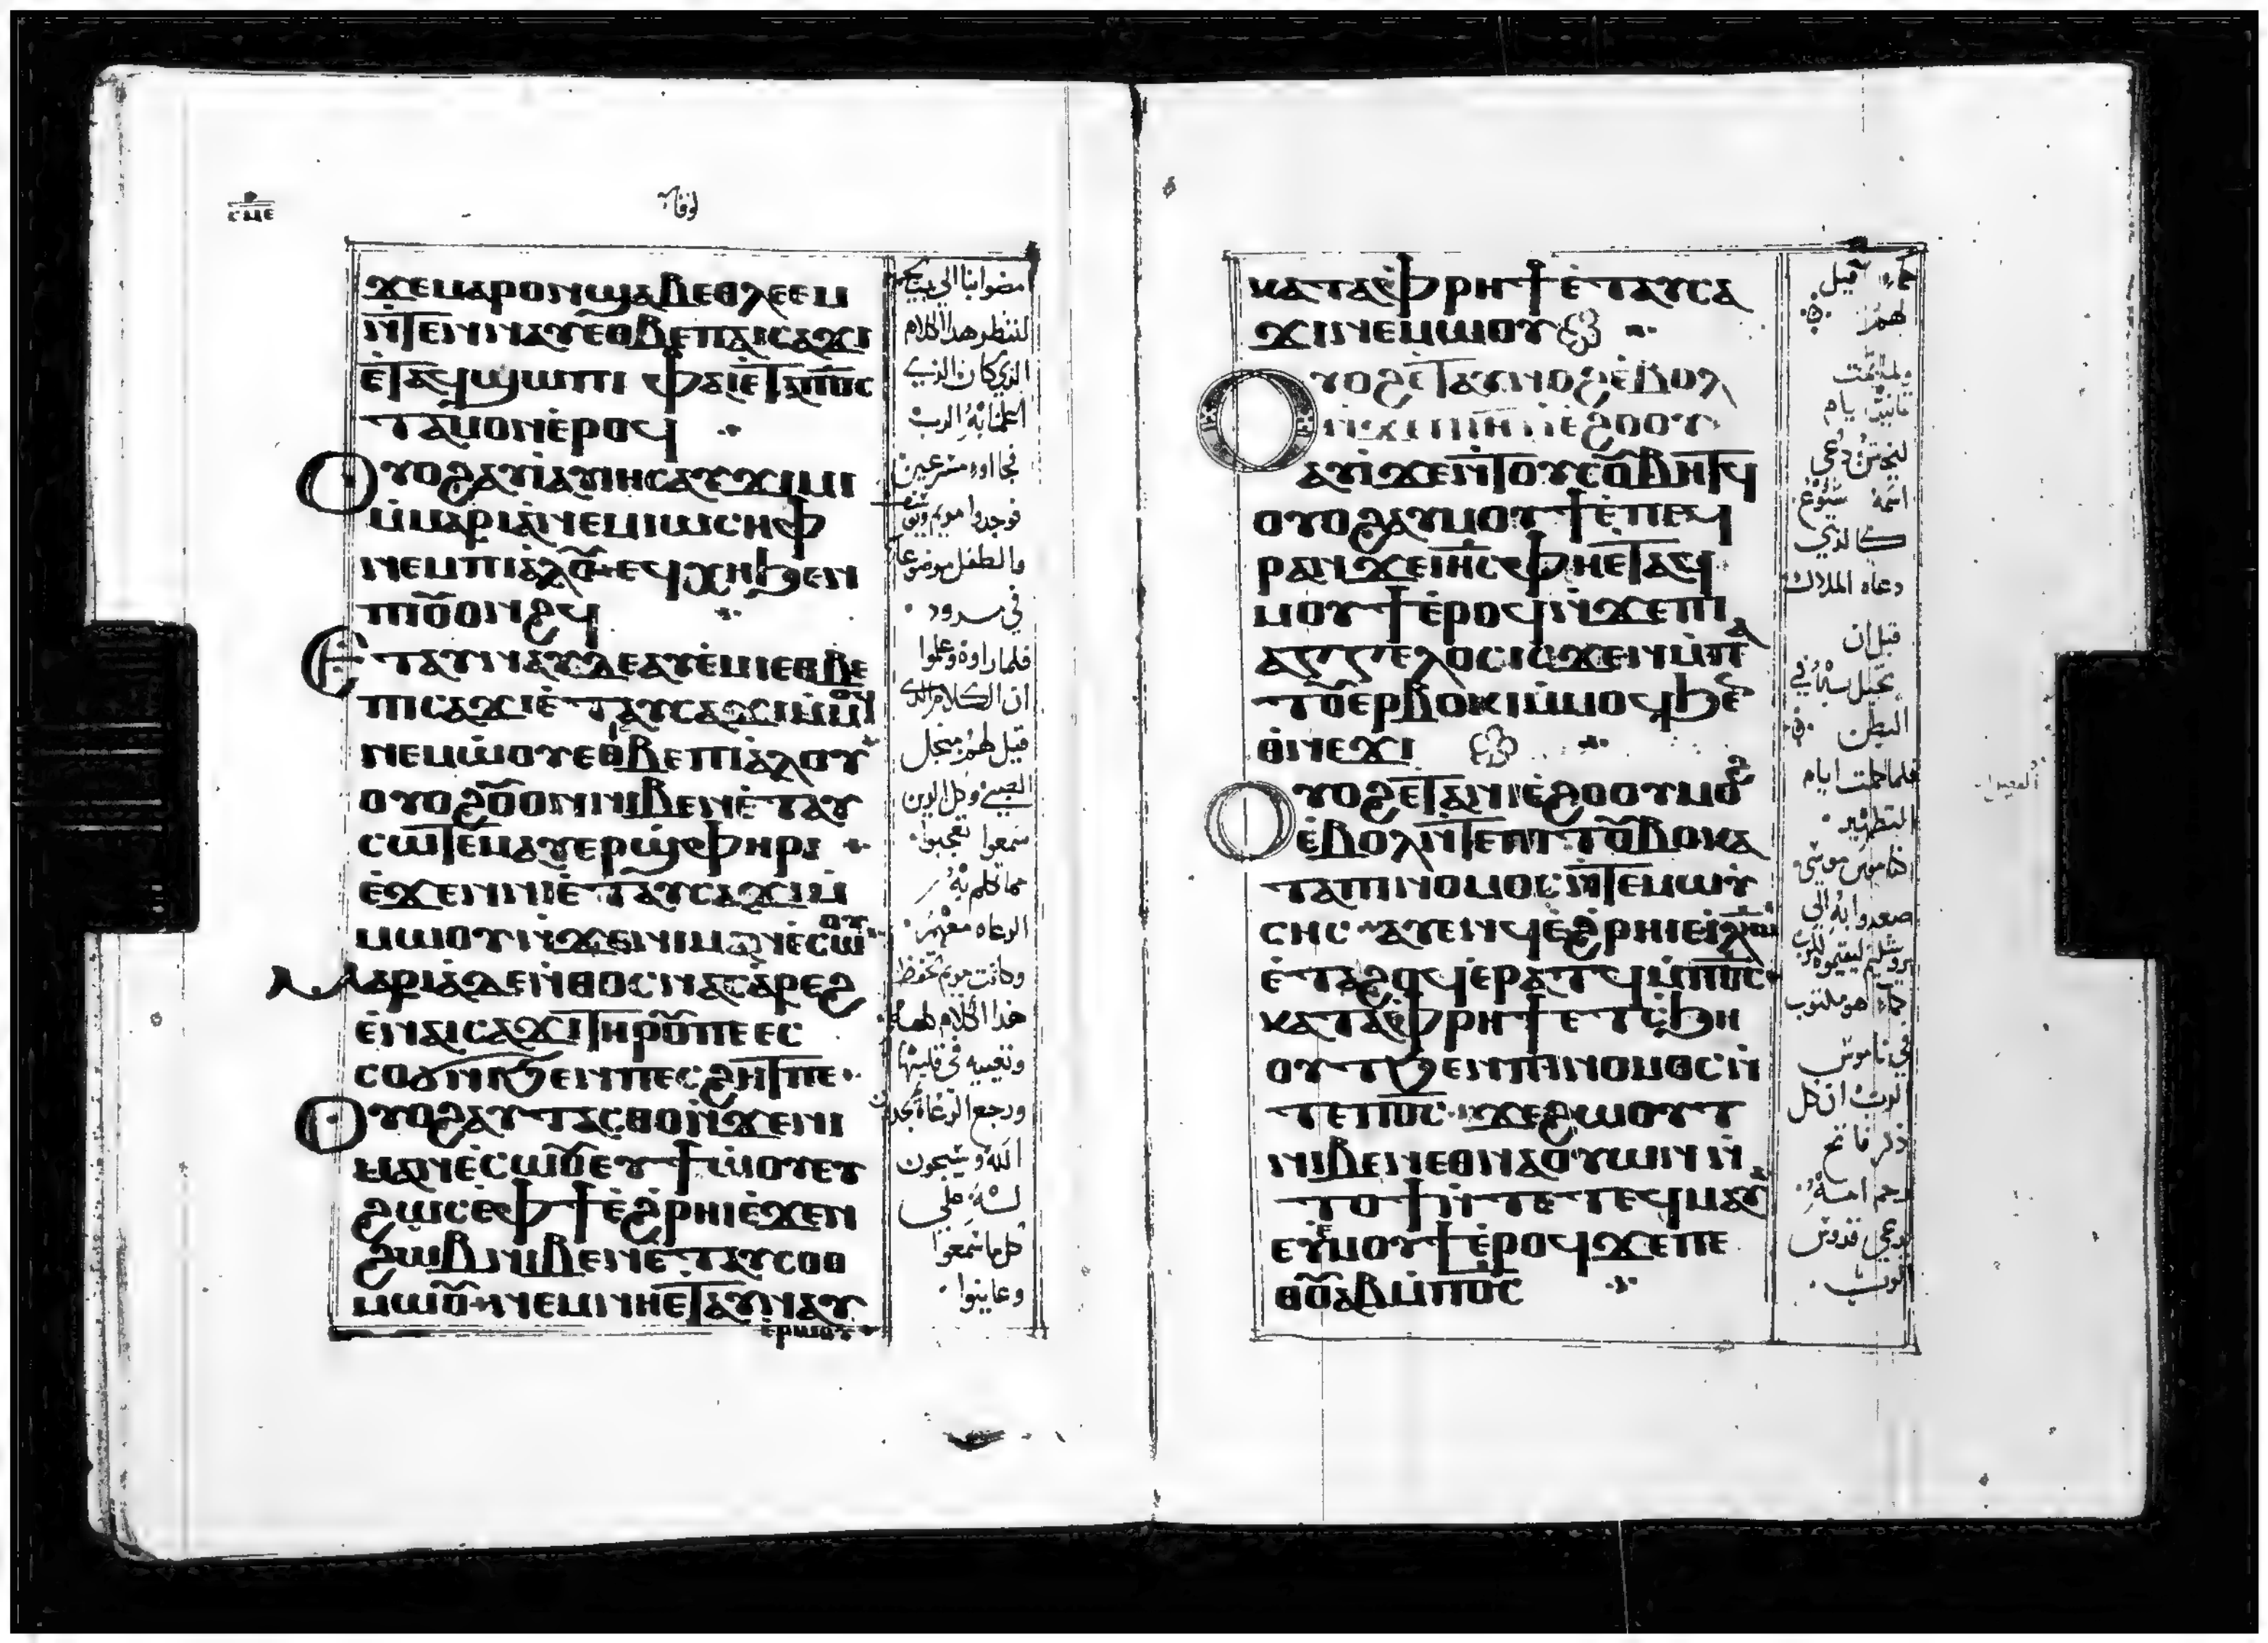 ⲥⲙⲉ
لوقا
ϫⲉⲙⲁⲣⲟⲛϣⲁⲃⲉⲑⲗⲉⲉⲙ
ⲛ̀ⲧⲉⲛⲛⲁⲩⲉⲑⲃⲉⲡⲁⲓⲥⲁϫⲓ
ⲉ̀ⲧⲁϥϣⲱⲡⲓ ⲫⲁⲓⲉ̀ⲧⲁⲡⲟ̅ⲥ̅
ⲧⲁⲙⲟⲛⲉ̀ⲣⲟϥ
Ⲟⲩⲟϩⲁⲩⲓ̀ⲁⲩⲓⲏⲥⲁⲩϫⲓⲙⲓ
ⲙ̀ⲙⲁⲣⲓⲁ̀ⲛⲉⲙⲓⲱⲥⲏⲫ
ⲛⲉⲙⲡⲓⲁ̀ⲗⲟⲩ ⲉϥⲭⲏϧⲉⲛ
ⲡⲓⲟⲩⲟⲛϩϥ
Ⲉⲧⲁⲩⲛⲁⲩⲇⲉⲁⲩⲉ̀ⲙⲓⲉⲑⲃⲉ
ⲡⲓⲥⲁϫⲓⲉ̀ⲧⲁⲩⲥⲁϫⲓⲙ̀ⲙⲟϥ
ⲛⲉⲙⲱⲟⲩⲉⲑⲃⲉⲡⲓⲁ̀ⲗⲟⲩ
ⲟⲩⲟϩⲟⲩⲟⲛⲛⲓⲃⲉⲛⲉ̀ⲧⲁⲩ
ⲥⲱⲧⲉⲙⲁⲩⲉⲣϣ̀ⲫⲏⲣⲓ
ⲉ̀ϫⲉⲛⲛⲏⲉ̀ⲧⲁⲩⲥⲁϫⲓⲙ̀
ⲙⲱⲟⲩⲛ̀ϫⲉⲛⲓⲙⲁⲛⲉ̀ⲥⲱⲟⲩ
Ⲙⲁⲣⲓⲁ̀ⲇⲉⲛ̀ⲑⲟⲥⲛⲁⲥⲁ̀ⲣⲉϩ
ⲉ̀ⲛⲁⲓⲥⲁϫⲓⲧⲏⲣⲟⲩⲡⲉⲉⲥ
ⲥⲟϭⲛⲓϧⲉⲛⲡⲉⲥϩⲏⲧⲡⲉ
Ⲟⲩⲟϩⲁⲩⲧⲁⲥⲑⲟⲛ̀ϫⲉⲛⲓ
ⲙⲁⲛⲉ̀ⲥⲱⲟⲩⲉⲩϯⲱ̀ⲟⲩⲉⲩ
ϩⲱⲥⲉ̀ⲫϯⲉ̀ϩ̀ⲣⲏⲓⲉ̀ϫⲉⲛ
ϩⲱⲃⲛⲓⲃⲉⲛⲉ̀ⲧⲁⲩⲥⲟⲑ
ⲙⲱⲟⲩ ⲛⲉⲙⲛⲏⲉ̀ⲧⲁⲩⲛⲁⲩ
ⲉⲣⲱⲟⲩ
مضوا بنا الى بيت لحم
لننظر هذا الكلام
الذي كان الذي
اعلمنا به الرب
فجااوا مسرعين
فوجدوا مريم ويوسف
والطفل موضوعا
في مدود
فلما راوه وعلموا
ان الكلام الذي
قيل لهم من اجل
الصبي وكل الذين
سمعوا تعجبوا
مما تكلم به
الرعاه معهم
وكانت مريم تحفظ
هذا الكلام كله
وتعييه في قلبها
ورجع الرعاه يمجدون
الله ويسبحون
لله على
كل ما سمعوا
وعاينوا
ⲕⲁⲧⲁⲫ̀ⲣⲏϯⲉ̀ⲧⲁⲩⲥⲁ
ϫⲓⲛⲉⲙⲱⲟⲩ
Ⲟⲩⲟϩⲉ̀ⲧⲁⲩⲙⲟϩⲉ̀ⲃⲟⲗ
ⲛ̀ϫⲉⲡⲓⲏ̀ⲛ̀ⲉ̀ϩⲟⲟⲩ
ⲁⲩⲓ̀ϫⲉⲛ̀ⲧⲟⲩⲥⲟⲩⲃⲏⲧϥ
ⲟⲩⲟϩⲁⲩⲙⲟⲩϯⲉ̀ⲡⲉϥ
ⲣⲁⲛϫⲉⲓⲏⲥⲫⲏⲉ̀ⲧⲁϥ
ⲙⲟⲩϯⲉ̀ⲣⲟϥⲛ̀ϫⲉⲡⲓ
ⲁⲅⲅⲉⲗⲟⲥⲓⲥϫⲉⲛⲙ̀ⲡⲁ
ⲧⲟⲩⲉⲣⲃⲟⲕⲓⲙ̀ⲙⲟϥϧⲉ
ⲑ̀ⲛⲉϫⲓ
Ⲟⲩⲟϩⲉ̀ⲧⲁⲛⲓⲉ̀ϩⲟⲟⲩⲙⲟϩ
ⲉ̀ⲃⲟⲗⲛ̀ⲧⲉⲡⲧⲟⲩⲃⲟⲕⲁ
ⲧⲁⲡⲓⲛⲟⲙⲟⲥⲛ̀ⲧⲉⲙⲱⲩ̀
ⲥⲏⲥ ⲁⲩⲉⲛϥⲉ̀ϩ̀ⲣⲏⲓⲉⲓ̀ⲗ̅ⲏ̅ⲙ̅
ⲉ̀ⲧⲁϩⲟϥⲉ̀ⲣⲁⲧϥⲙ̀ⲡⲟ̅ⲥ̅
ⲕⲁⲧⲁⲫ̀ⲣⲏϯⲉⲧⲥ̀ϧⲏ
ⲟⲩⲧϧⲉⲛⲡⲓⲛⲟⲙⲟⲥⲛ̀
ⲧⲉⲡⲟ̅ⲥ̅ ϫⲉϩⲱⲟⲩⲧ
ⲛⲓⲃⲉⲛⲉⲑⲛⲁⲟⲩⲱⲛⲛ̀
ⲧⲟϯⲛ̀ⲧⲉⲧⲉϥⲙⲁⲩ
ⲉⲩⲉ̀ⲙⲟⲩϯⲉ̀ⲣⲟϥϫⲉⲡⲉ
ⲑⲟⲩⲁⲃⲙ̀ⲡⲟ̅ⲥ̅
كما قيل
لهم
ولما تمت
ثمانية ايام
ليختن دعي
اسمه يسوع
كالذي
دعاه الملاك
قبل ان
تحبل به في
البطن
فلما كملت ايام
التطهير
كناموس موسى
صعدوا به الى
يروشليم ليقيموه للرب
كما هو مكتوب
في ناموس
الرب ان كل
ذكر فاتح
رحم امه
دعي قدوس
الرب